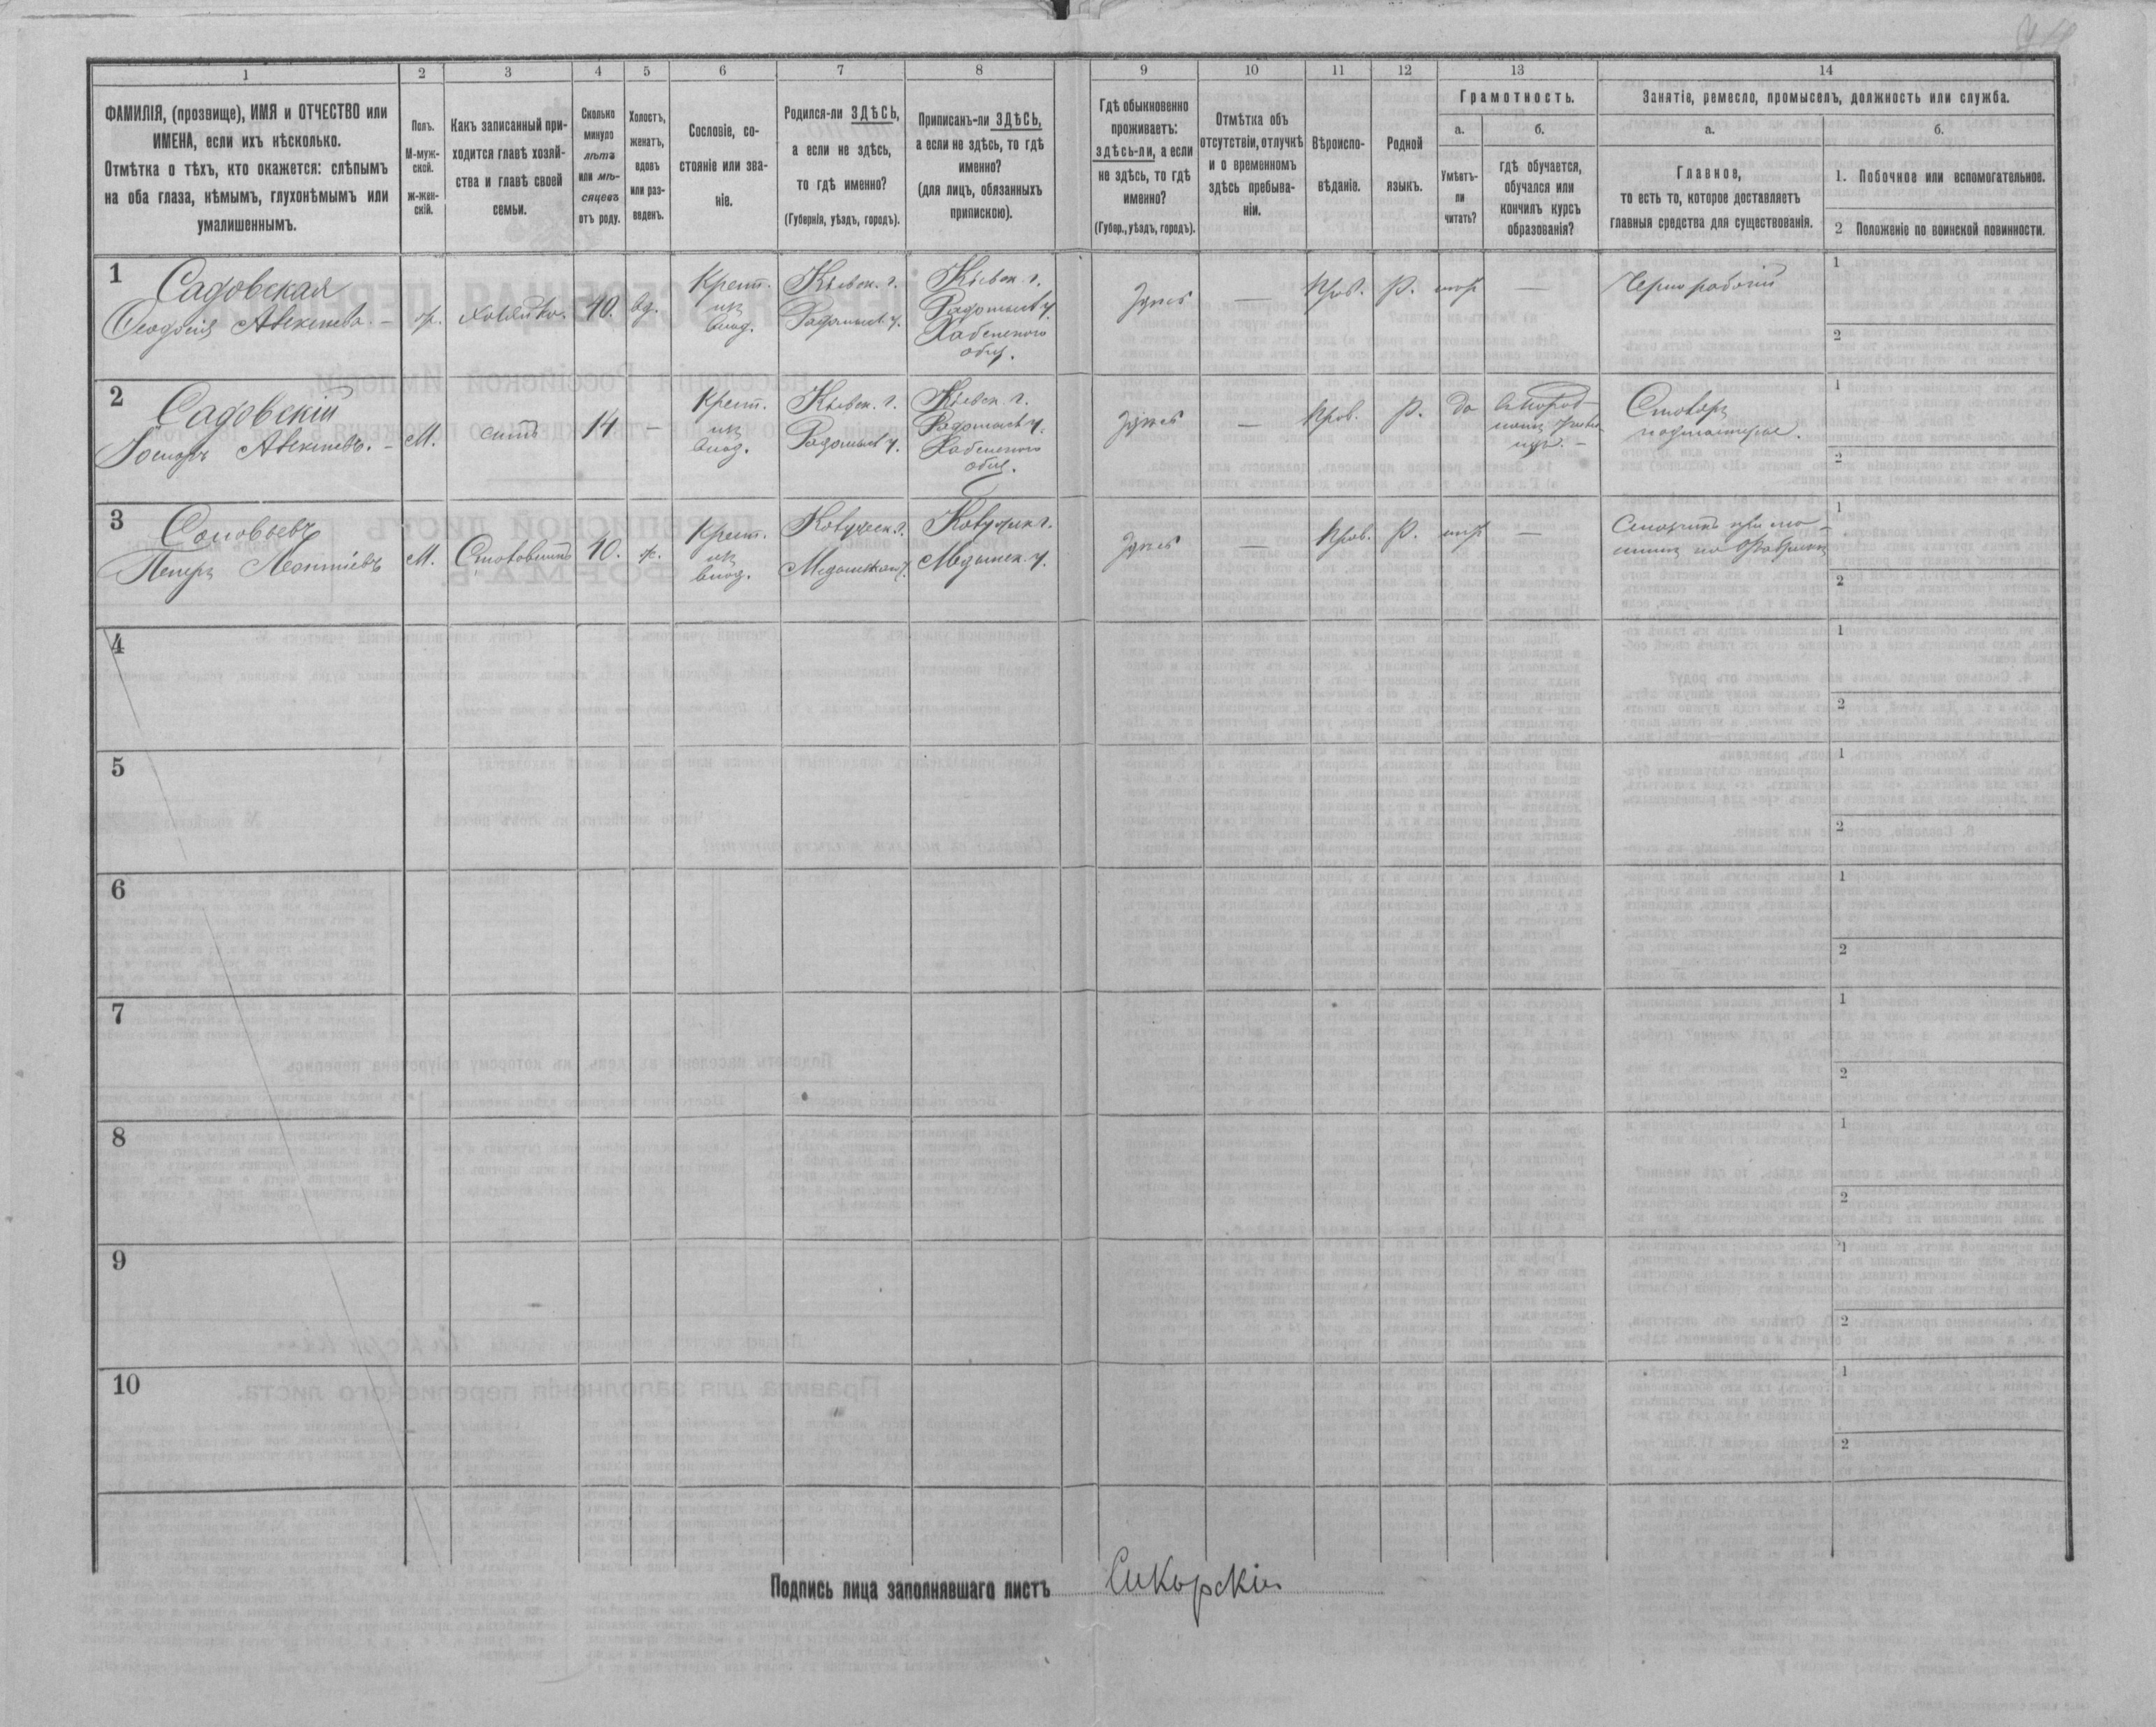 1 2 3 4 5 6 7 8 9 10 11 12 13 14
ФАМИЛІЯ, (прозвище), ИМЯ и ОТЧЕСТВО или
ИМЕНА, если ихъ нѣсколько.
Отмѣтка о тѣхъ, кто окажется: слѣпымъ
на оба глаза, нѣмымъ, глухонѣмымъ или
умалишеннымъ.
Полъ.
М-муж-
ской.
ж-жен-
скій.
Какъ записанный при-
ходится главѣ хозяй-
ства и главѣ своей
семьи.
Сколько
минуло
лѣтъ
или мѣ-
сяцевъ
отъ роду.
Холостъ,
женатъ,
вдовъ
или раз-
веденъ.
Сословіе, со-
стояніе или зва-
ніе.
Родился-ли ЗДѢСЬ,
а если не здѣсь,
то гдѣ именно?
(Губернія, уѣздъ, городъ).
Приписанъ-ли ЗДѢСЬ,
а если не здѣсь, то гдѣ
именно?
(для лицъ, обязанныхъ
припискою).
Гдѣ обыкновенно
проживаетъ:
здѣсь-ли, а если
не здѣсь, то гдѣ
именно?
(Губер., уѣздъ, городъ).
Отмѣтка объ
отсутствіи, отлучкѣ
и о временномъ
здѣсь пребыва-
ніи.
Вѣроиспо-
вѣданіе.
Родной
языкъ.
Грамотность.
а.
Умѣетъ-
ли
читать?
б.
гдѣ обучается,
обучался или
кончилъ курсъ
образованія?
Занятіе, ремесло, промыселъ, должность или служба.
а.
Главное,
то есть то, которое доставляетъ
главныя средства для существованія.
б.
1. Побочное или вспомогательное.
2 Положеніе по воинской повинности.
1
Садовская
Ѳеодосія
ж.
хозяйка.
40.
вд.
Крест.
из
влад.
Кіевск. г.
Радомысл. у.
Кіевск. г.
Радомысл. у.
Хабенского
общ.
здѣсь
—
Прав.
Р.
—
Чернорабочій
1
2
2
Садовскій
М.
сынъ
14
—
Крест.
из
влад.
Кіевск. г.
Радомысл. у.
Кіевск. г.
Радомысл. у.
Хабенского
общ.
здѣсь
—
Прав.
Р.
да
Столяр
подмастерье.
1
2
3
Соловьевъ
Петръ Леонтіевъ
М.
40.
ж.
Крест.
из
влад.
Калужск. г.
Медынск. у.
Калужск. г.
Медынск. у.
здѣсь
—
Прав.
Р.
—
1
2
4
1
2
5
1
2
6
1
2
7
1
2
8
1
2
9
1
2
10
1
2
Подпись лица заполнявшаго листъ Сикорскій